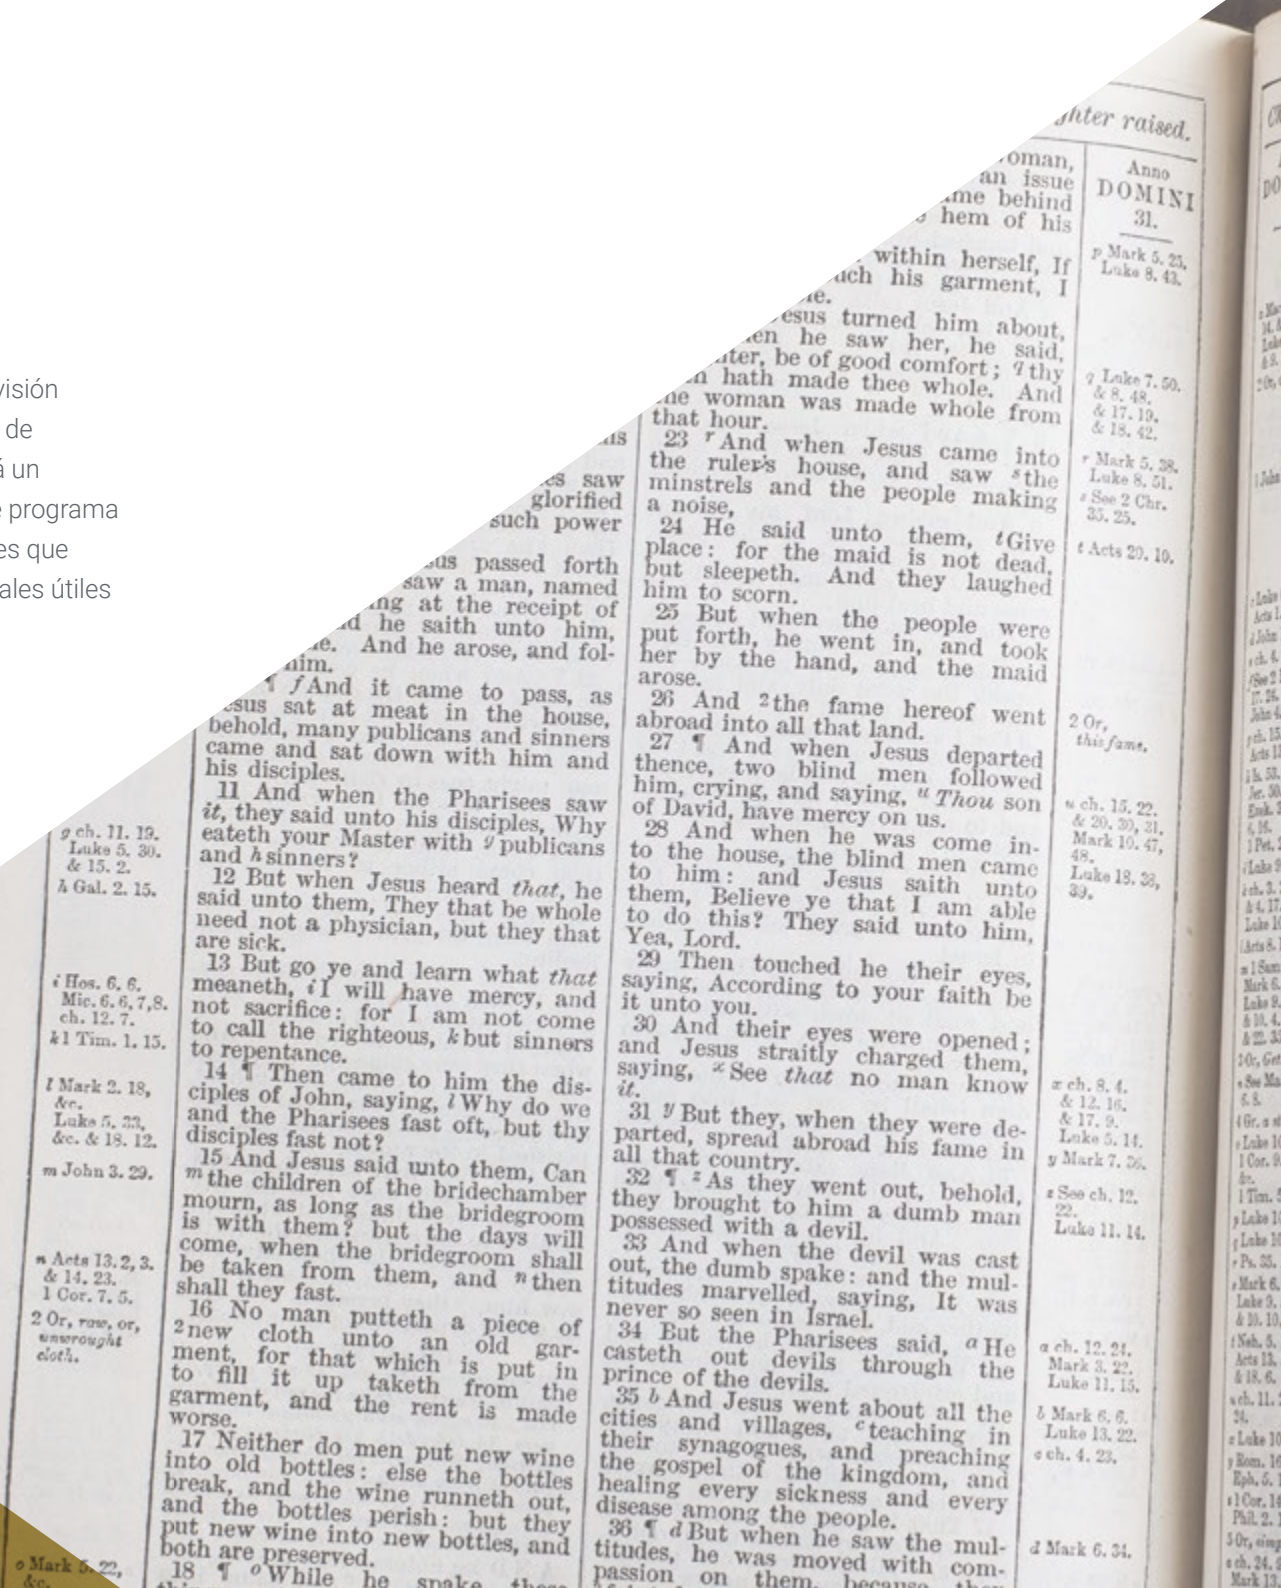 visión
de
un
programa
es que
ales útiles
g ch. 11. 19.
Luke 5. 30.
& 15. 2.
h Gal. 2. 15.
i Hos. 6. 6.
Mic. 6. 6,7,8.
ch. 12. 7.
k 1 Tim. 1. 15.
l Mark 2. 18,
&c.
Luke 5. 33,
&c. & 18. 12.
m John 3. 29.
n Acts 13. 2, 3.
& 14. 23.
1 Cor. 7. 5.
2 Or, raw, or,
unwrought
cloth.
o Mark 5. 22,
&c.
saw
glorified
such power
passed forth
saw a man, named
at the receipt of
he saith unto him,
And he arose, and fol-
him.
¶ f And it came to pass, as
Jesus sat at meat in the house,
behold, many publicans and sinners
came and sat down with him and
his disciples.
11 And when the Pharisees saw
it, they said unto his disciples, Why
eateth your Master with g publicans
and h sinners?
12 But when Jesus heard that, he
said unto them, They that be whole
need not a physician, but they that
are sick.
13 But go ye and learn what that
meaneth, i I will have mercy, and
not sacrifice: for I am not come
to call the righteous, k but sinners
to repentance.
14 ¶ Then came to him the dis-
ciples of John, saying, l Why do we
and the Pharisees fast oft, but thy
disciples fast not?
15 And Jesus said unto them, Can
m the children of the bridechamber
mourn, as long as the bridegroom
is with them? but the days will
come, when the bridegroom shall
be taken from them, and n then
shall they fast.
16 No man putteth a piece of
2 new cloth unto an old gar-
ment, for that which is put in
to fill it up taketh from the
garment, and the rent is made
worse.
17 Neither do men put new wine
into old bottles: else the bottles
break, and the wine runneth out,
and the bottles perish: but they
put new wine into new bottles, and
both are preserved.
18 ¶ o While he spake these
ghter raised.
oman,
an issue
me behind
hem of his
within herself, If
uch his garment, I
esus turned him about,
en he saw her, he said,
ter, be of good comfort; q thy
hath made thee whole. And
the woman was made whole from
that hour.
23 r And when Jesus came into
the ruler's house, and saw s the
minstrels and the people making
a noise,
24 He said unto them, t Give
place: for the maid is not dead,
but sleepeth. And they laughed
him to scorn.
25 But when the people were
put forth, he went in, and took
her by the hand, and the maid
arose.
26 And 2 the fame hereof went
abroad into all that land.
27 ¶ And when Jesus departed
thence, two blind men followed
him, crying, and saying, u Thou son
of David, have mercy on us.
28 And when he was come in-
to the house, the blind men came
to him: and Jesus saith unto
them, Believe ye that I am able
to do this? They said unto him,
Yea, Lord.
29 Then touched he their eyes,
saying, According to your faith be
it unto you.
30 And their eyes were opened;
and Jesus straitly charged them,
saying, x See that no man know
it.
31 y But they, when they were de-
parted, spread abroad his fame in
all that country.
32 ¶ z As they went out, behold,
they brought to him a dumb man
possessed with a devil.
33 And when the devil was cast
out, the dumb spake: and the mul-
titudes marvelled, saying, It was
never so seen in Israel.
34 But the Pharisees said, a He
casteth out devils through the
prince of the devils.
35 b And Jesus went about all the
cities and villages, c teaching in
their synagogues, and preaching
the gospel of the kingdom, and
healing every sickness and every
disease among the people.
36 ¶ d But when he saw the mul-
titudes, he was moved with com-
passion on them, because they
Anno
DOMINI
31.
p Mark 5. 25.
Luke 8. 43.
q Luke 7. 50.
& 8. 48.
& 17. 19.
& 18. 42.
r Mark 5. 38.
Luke 8. 51.
s See 2 Chr.
35. 25.
t Acts 20. 10.
2 Or,
this fame.
u ch. 15. 22.
& 20. 30, 31.
Mark 10. 47,
48.
Luke 18. 38,
39.
x ch. 8. 4.
& 12. 16.
& 17. 9.
Luke 5. 14.
y Mark 7. 36.
z See ch. 12.
22.
Luke 11. 14.
a ch. 12. 24.
Mark 3. 22.
Luke 11. 15.
b Mark 6. 6.
Luke 13. 22.
c ch. 4. 23.
d Mark 6. 34.